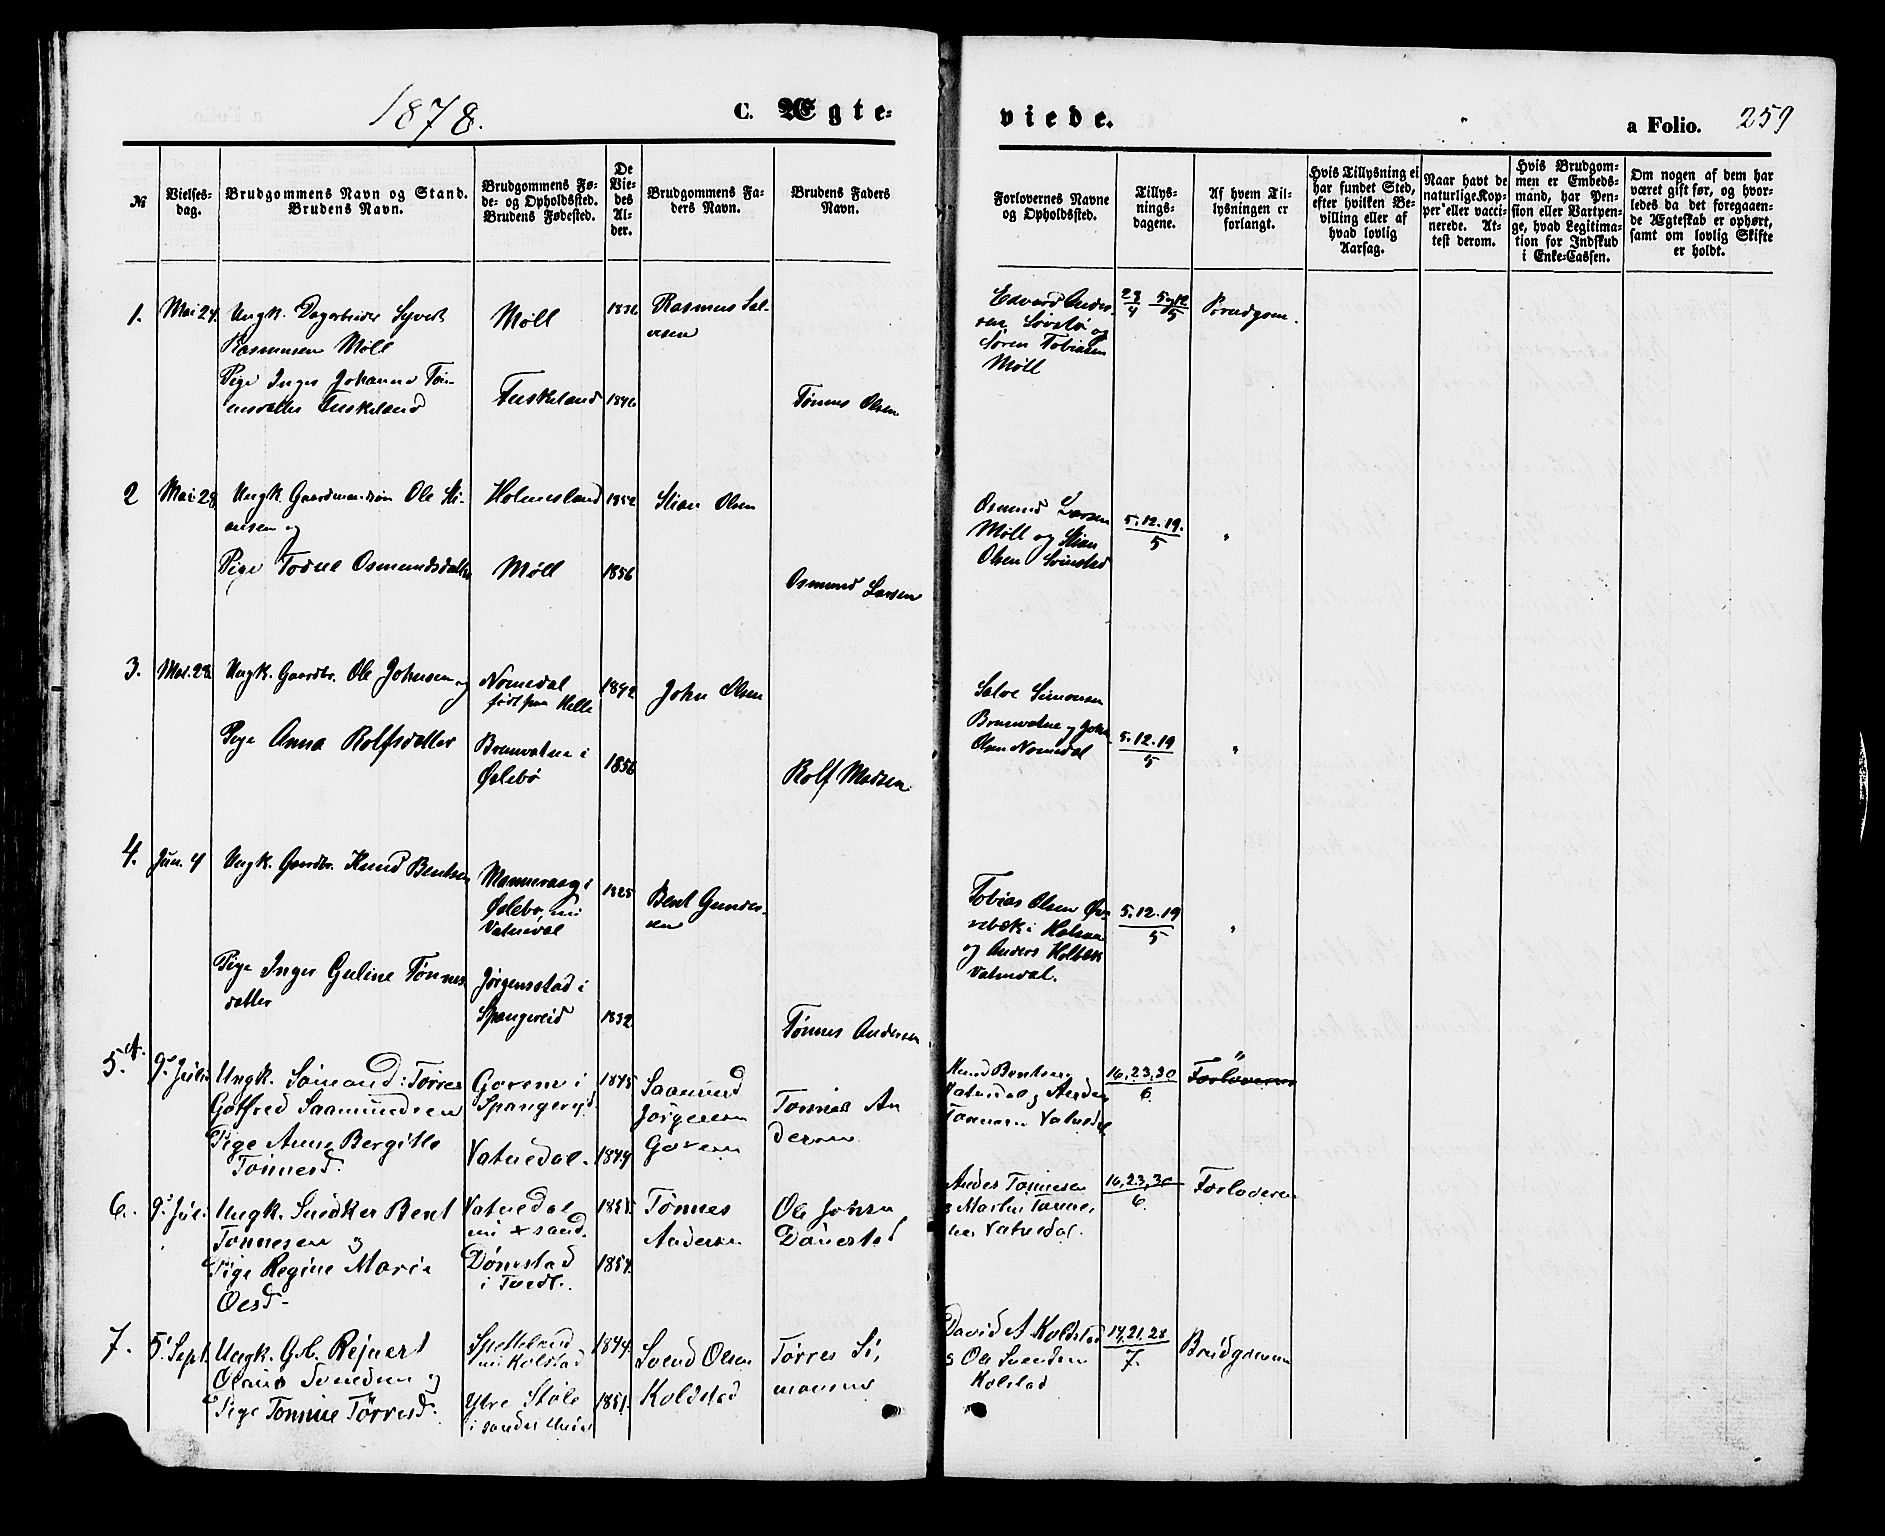 1878.
C. Ægte-
viede.
a Folio.
259
№
Vielses-
dag.
Brudgommens Navn og Stand.
Brudens Navn.
Brudgommens Fø-
de- og Opholdssted.
Brudens Fødested.
De
Vie-
des
Al-
der.
Brudgommens Fa-
ders Navn.
Brudens Faders
Navn.
Forlovernes Navne
og Opholdssted.
Tillys-
nings-
dagene.
Af hvem Til-
lysningen er
forlangt.
Hvis Tillysning ei
har fundet Sted,
efter hvilken Be-
villing eller af
hvad lovlig
Aarsag.
Naar havt de
naturlige Kop-
per eller vacci-
nerede. At-
test derom.
Hvis Brudgom-
men er Embeds-
mand, har Pen-
sion eller Vartpen-
ge, hvad Legitima-
tion for Indskud
i Enke-Cassen.
Om nogen af dem har
været gift før, og hvor-
ledes da det foregaaen-
de Ægteskab er ophørt,
samt om lovlig Skifte
er holdt.
1.
Mai 24.
Ungk. Dagarbeider Sjvert
Rasmusen Møll
Pige Inger Johanne Tøn-
nesdatter Fuskeland
Møll
Fuskeland
1836
1846
Rasmus Sal-
vesen
Tønnes Olsen
Edvard Anders-
sen
og
Søren Tobiasen
Møll
28/4 5 og 12/5
Brudgom.
2
Mai 28
Ungk. Gaardmandssøn Ole Sti-
ansen og
Pige Todne Osmundsdatter
Holmesland
Møll
1852
1856
Stian Olsen
Osmund Larsen
Osmund Larsen
Møll og Stian
Olsen Svinstad
5. 12. 19.
5
"
3.
Mai. 28
Ungk. Gaardbr. Ole Johnsen og
Pige Anna Rolfsdatter
Nomedal
født paa Helle
Brunvatne i
Øslebø
1842
1856
John Olsen
Rolf Madsen
Salve Simonsen
Brunvatne og John
Olsen Nomedal
5. 12. 19
5
"
4.
Jun. 4
Ungk. Gaardbr. Knud Bentsen
Pige Inger Guline Tønnes
datter
Manneraag i
Øslebø, nu
Vatnedal
Jørgensstad i
Spangereid
1825
1832
Bent Gunder-
sen
Tønnes Andersen
Tobias Olsen Øv
rebæk i Halsaa
og Anders Holbæk
Vatnedal.
5. 12. 19
5
"
5.
9. Juli
Ungk. Sømand: Tørres
Gotfred Saamundsen
Pige Anne Bergitte
Tønnesd.
Govem i
Spangereid
Vatnedal.
1845
1849
Saamund
Jørgensen
Govem
Tønnes An
dersen
Knud Bentsen
Vatnedal og Anders
Tønnesen Vatnedal
16, 23, 30
6.
"
Forloveren
6.
9. Juli
Ungk. Snidker Bent
Tønnesen og
Pige Regine Marie
Olsd.
Vatnedal
nu xsand.
Dønestad
i Tvedt.
1854.
Tønnes
Andersen
Ole Jonsen
Dønestad
Anders Tønnesen
& Martin Tønne
sen Vatnedal.
16, 23, 30
6.
Forloveren
7.
5. Sept.
Ungk. Gbr. Rejnert
Olaus Svendsen og
Pige Tonnie Tørresd.
Spetteland
nu Kolstad
Ytre Støle
1844
1851.
Svend Olsen
Koldstad
Tørres Si,
monsen
David A Koldstad
& Ole Svendsen
Kolstad
14, 21, 28
7.
Brudgommen